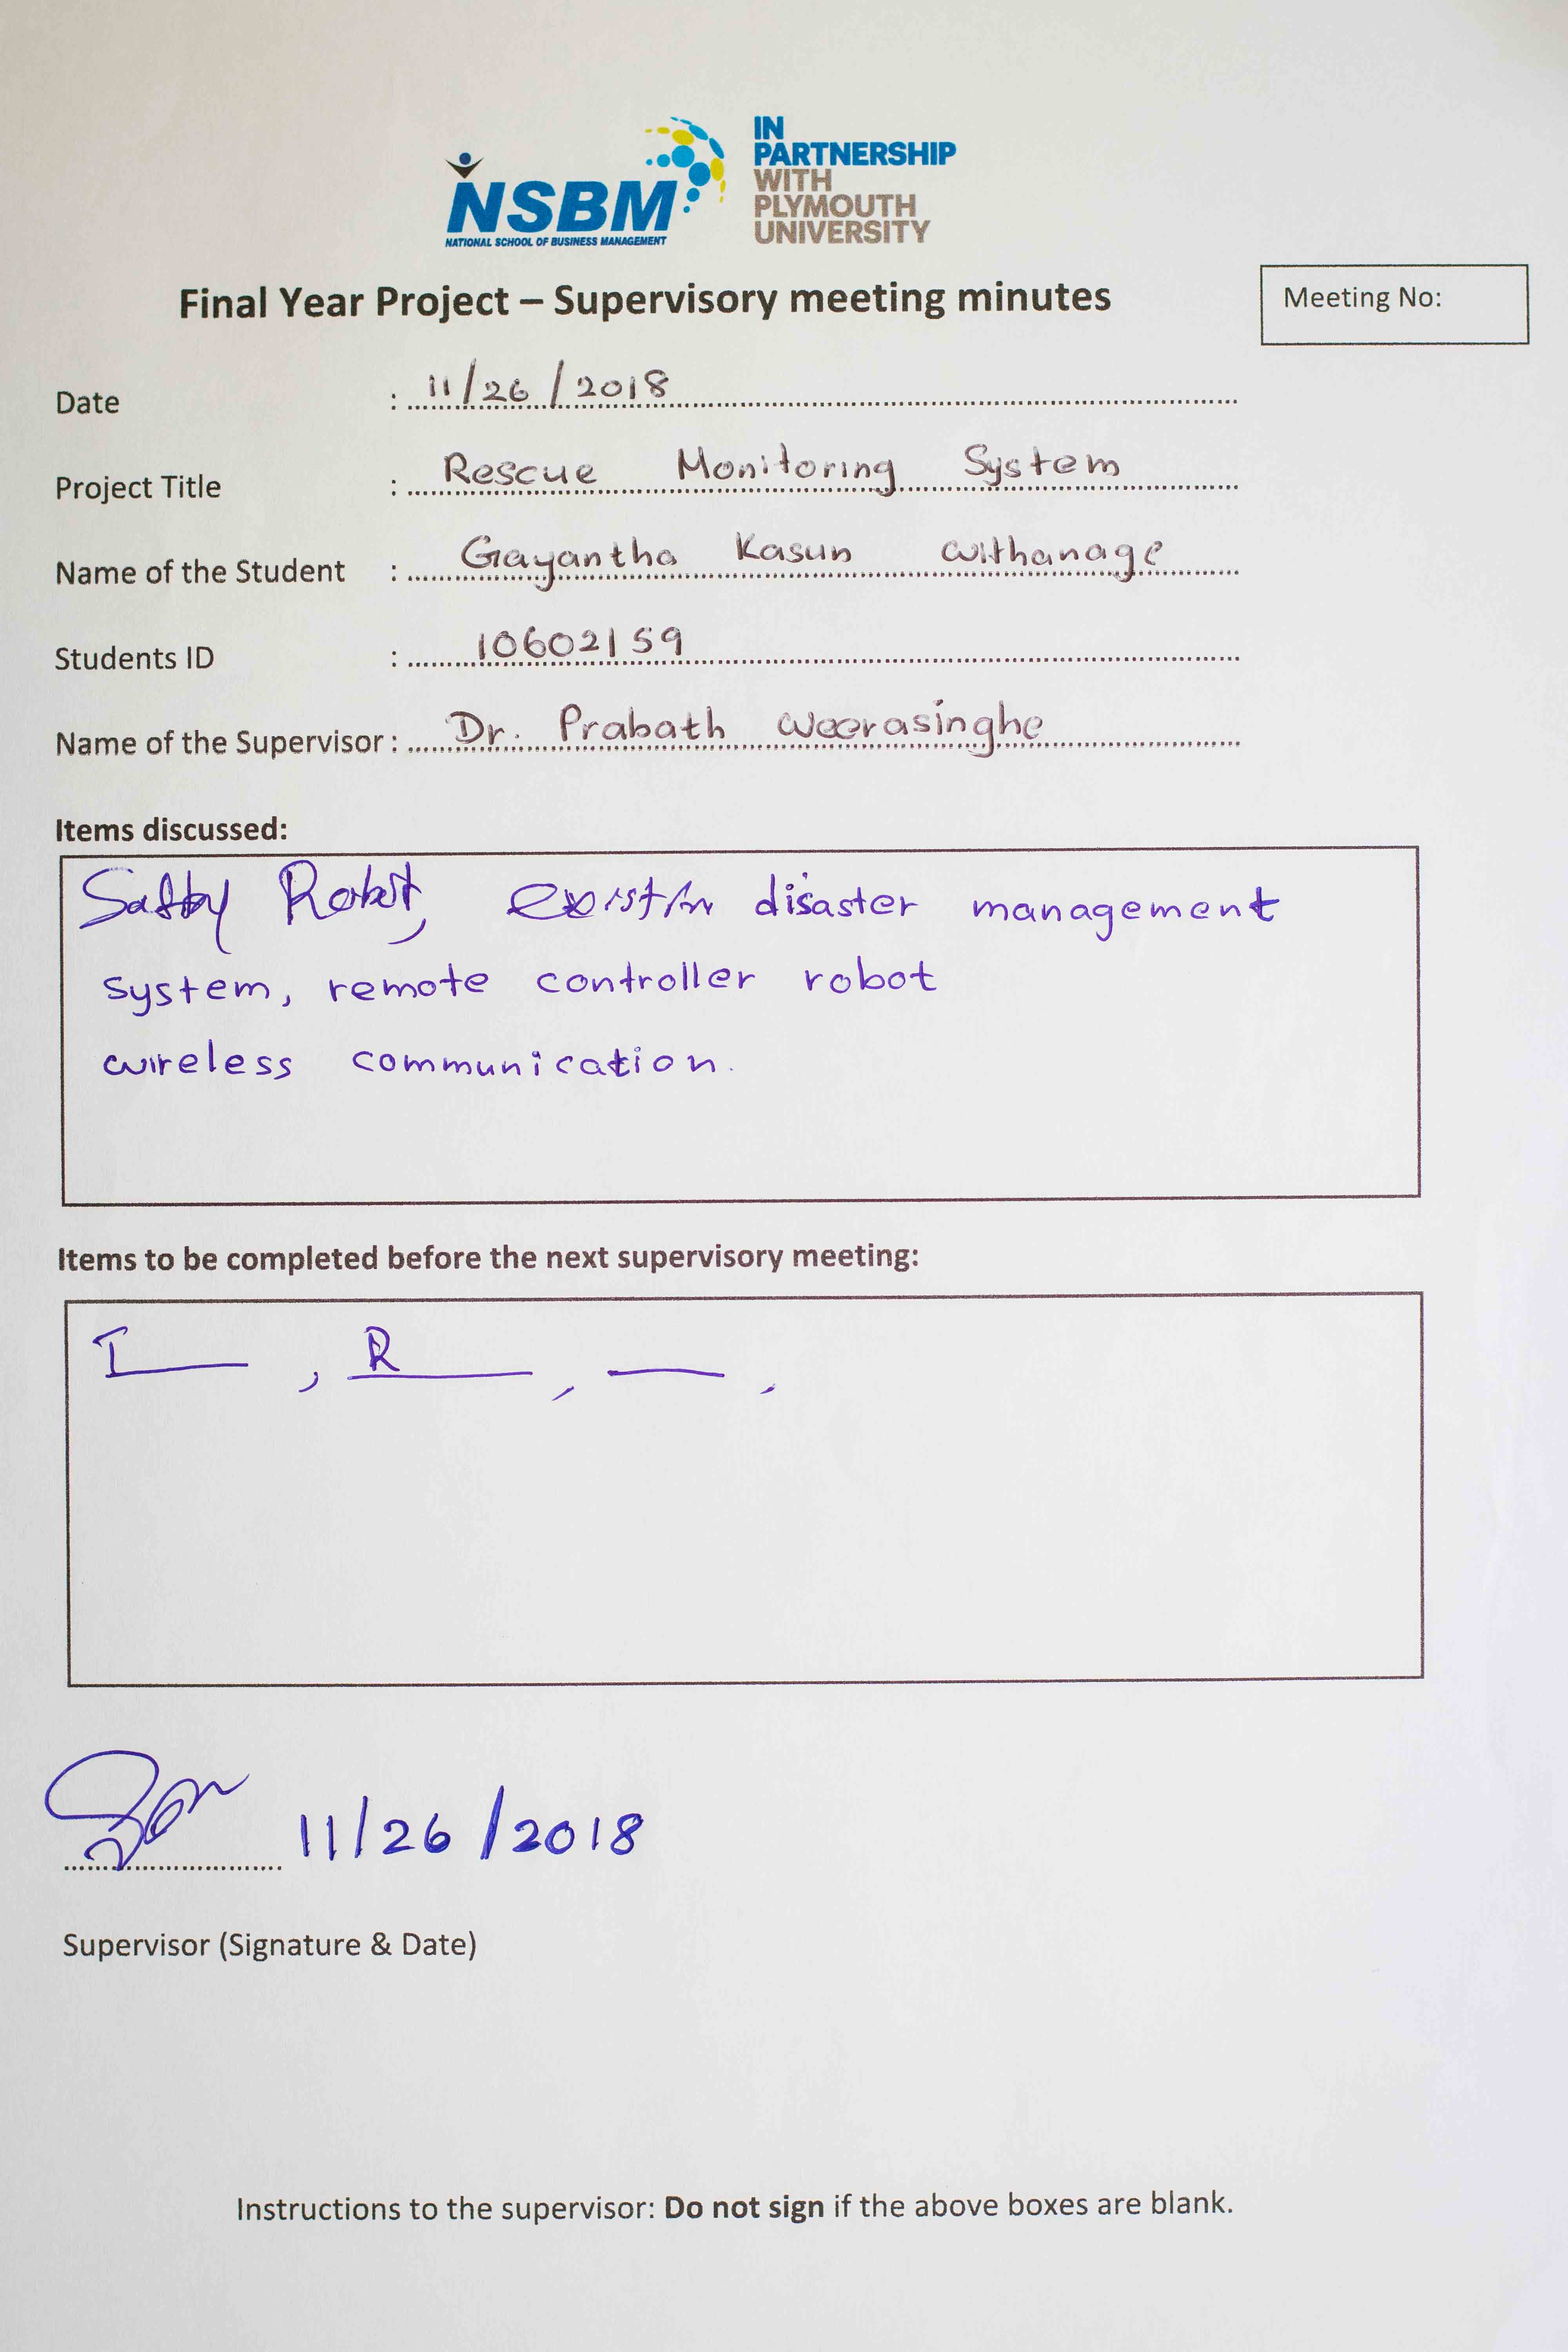 IN
PARTNERSHIP
WITH
PLYMOUTH
UNIVERSITY
NSBM
NATIONAL SCHOOL OF BUSINESS MANAGEMENT
Final Year Project – Supervisory meeting minutes
Meeting No:
Date : 11/26/2018
Project Title : Rescue Monitoring System
Name of the Student : Gayantha Kasun withanage
Students ID : 10602159
Name of the Supervisor : Dr. Prabath weerasinghe
Items discussed:
Robot, disaster management
system, remote controller robot
wireless communication.
Items to be completed before the next supervisory meeting:
I , R , ,
11/26/2018
Supervisor (Signature & Date)
Instructions to the supervisor: Do not sign if the above boxes are blank.